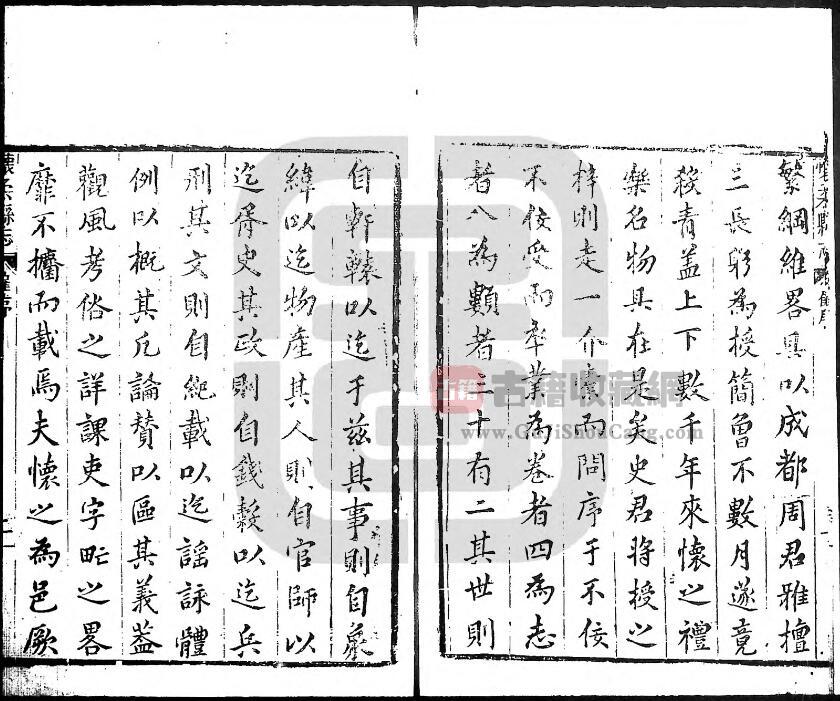 繁綱維畧具以成都周君雅擅
三長躬為授簡曾不數月遂竟
殺青葢上下數千年來懷之禮
樂名物具在是矣史君將授之
梓則走一介書而問序于不佞
不佞受而卒業為卷者四為志
者八為類者三十有二其世則
自軒轅以迄于茲其事則自象
緯以迄物產其人則自官師以
迄胥史其政則自錢穀以迄兵
刑其文則自紀載以迄謡詠體
例以概其凡論贊以區其義葢
觀風考俗之詳課吏字甿之畧
靡不攟而載焉夫懷之為邑厥
懷柔縣志
古籍收藏網
www.GujiShouCang.com